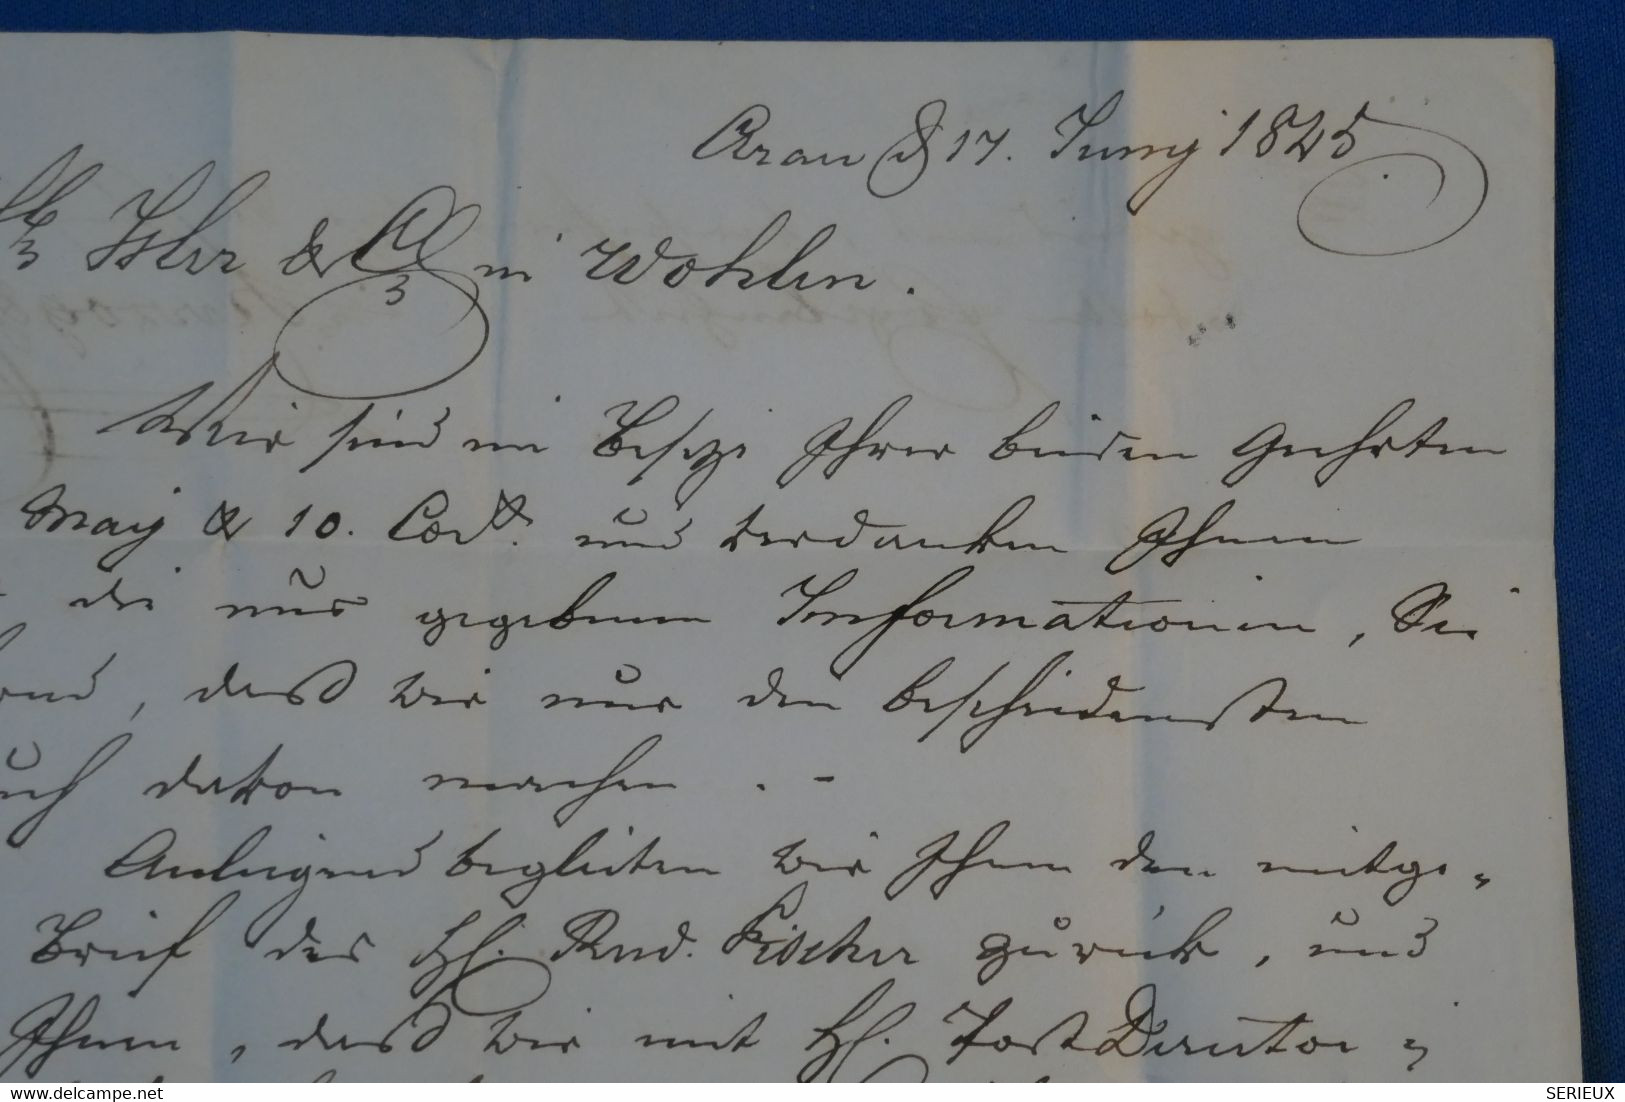 Arau d 17. Juny 1845
Isler & Cie in Wohlen.
Wir sind im Besize Ihrer beiden Geehrten
May & 10. Cour. und verdanken Ihnen
die uns gegebenen Informationen, Sie
daß wir nur den bescheidensten
davon machen. -
Anliegend begleiten wir Ihnen den mitge-
Brief des HH. Rud. Fischer zurück, und
Ihnen, daß wir mit HH. Post Direktor
delcampe.net
SERIEUX